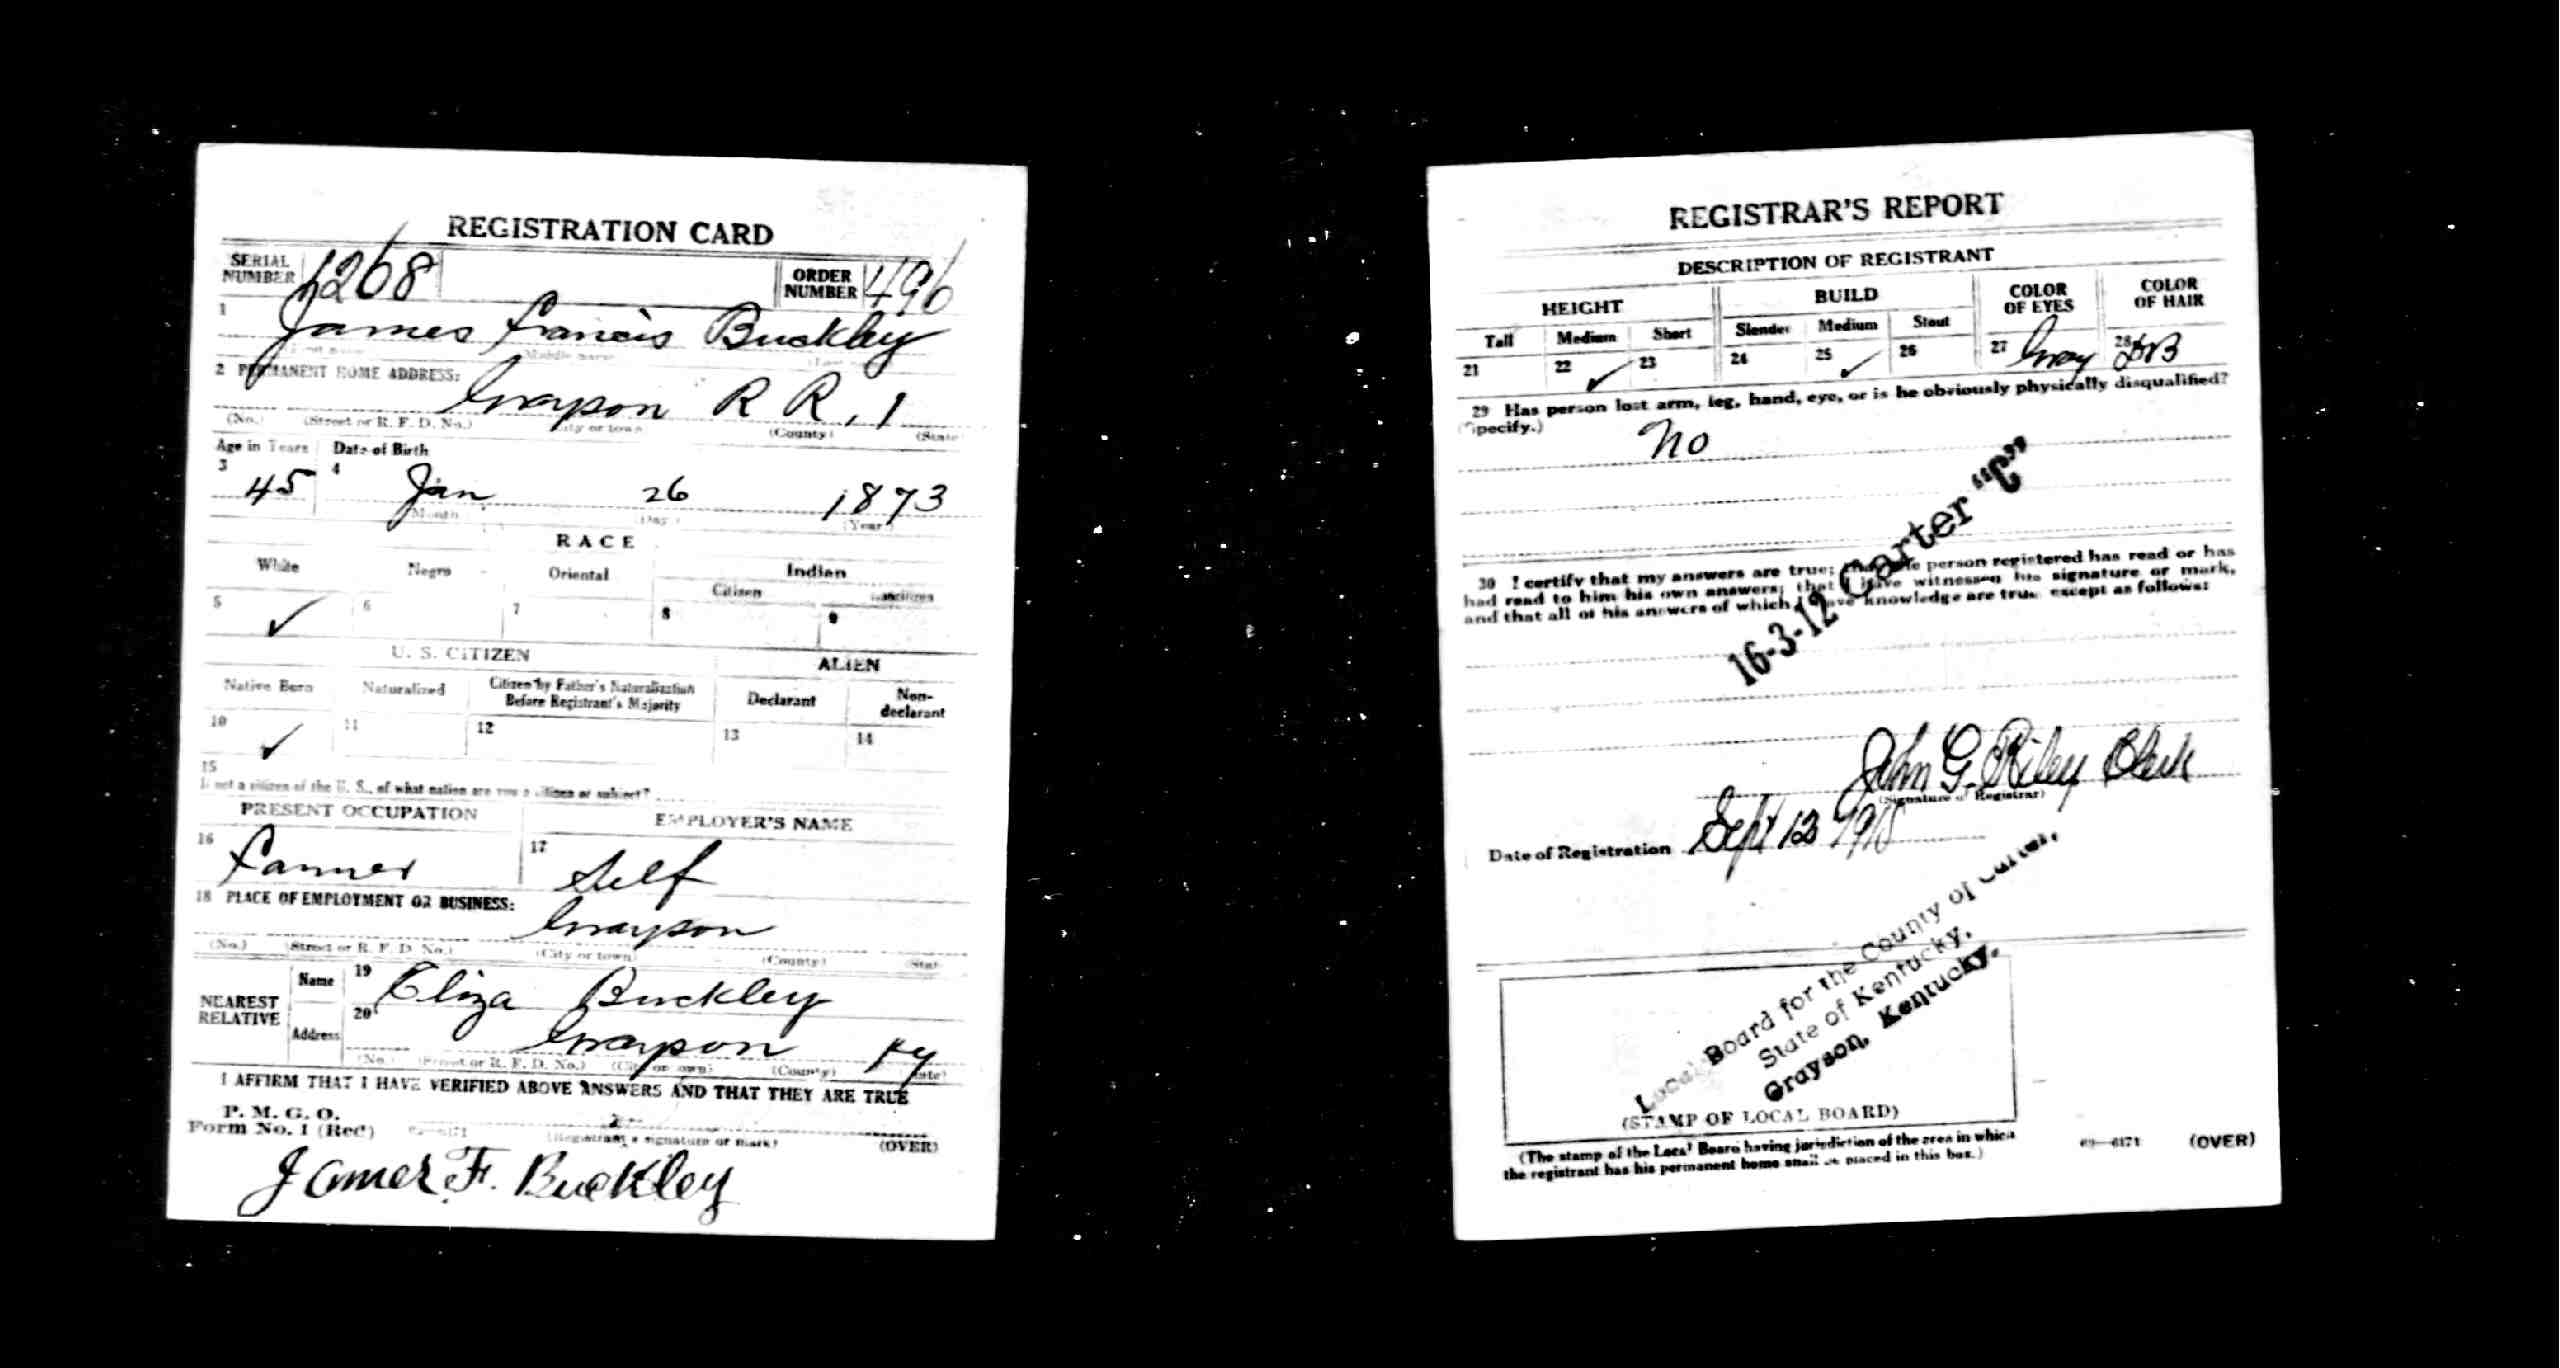 REGISTRATION CARD
SERIAL NUMBER 1268 ORDER NUMBER 496
1 James Francis Buckley
Middle name
2 PERMANENT HOME ADDRESS:
Grayson R R, 1
(No.) (Street or R. F. D. No.) City or town (County) (State
Age in Years Date of Birth
3 45 4 Jan 26 1873
(Month (Day) (Year)
RACE
White Negro Oriental Indian
Citizen Noncitizen
5 ✓ 6 7 8 9
U. S. CITIZEN ALIEN
Native Born Naturalized Citizen by Father's Naturalization Before Registrant's Majority Declarant Non-declarant
10 ✓ 11 12 13 14
15
If not a citizen of the U. S., of what nation are you a citizen or subject?
PRESENT OCCUPATION EMPLOYER'S NAME
16 Farmer 17 Self
18 PLACE OF EMPLOYMENT OR BUSINESS:
Grayson
(No.) (Street or R. F. D. No.) (City or town) (County) (State
NEAREST RELATIVE
Name 19 Eliza Buckley
Address 20 Grayson Ky
(No.) (Street or R. F. D. No.) (City or town) (County) State)
I AFFIRM THAT I HAVE VERIFIED ABOVE ANSWERS AND THAT THEY ARE TRUE
P. M. G. O.
Form No. 1 (Red) (Registrant's signature or mark) (OVER)
James F. Buckley
REGISTRAR'S REPORT
DESCRIPTION OF REGISTRANT
HEIGHT BUILD COLOR OF EYES COLOR OF HAIR
Tall Medium Short Slender Medium Stout
21 22 ✓ 23 24 25 ✓ 26 27 Gray 28
29 Has person lost arm, leg, hand, eye, or is he obviously physically disqualified?
(Specify.)
No
16-3-12 Carter "C"
30 I certify that my answers are true; that the person registered has read or has
had read to him his own answers; that I have witnessed his signature or mark,
and that all of his answers of which I have knowledge are true, except as follows:
John G. Riley Clerk
(Signature of Registrar)
Date of Registration Sept 12 1918
Local Board for the County of Carter,
State of Kentucky,
Grayson, Kentucky.
(STAMP OF LOCAL BOARD)
(The stamp of the Local Board having jurisdiction of the area in which
the registrant has his permanent home shall be placed in this box.)
03-6171 (OVER)